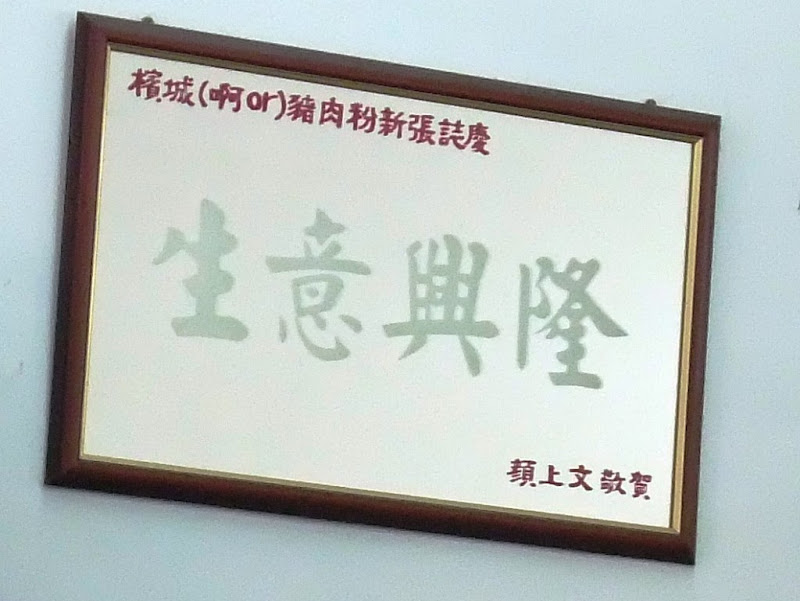 檳城(啊or)豬肉粉新張誌慶
生意興隆
顏上文敬賀